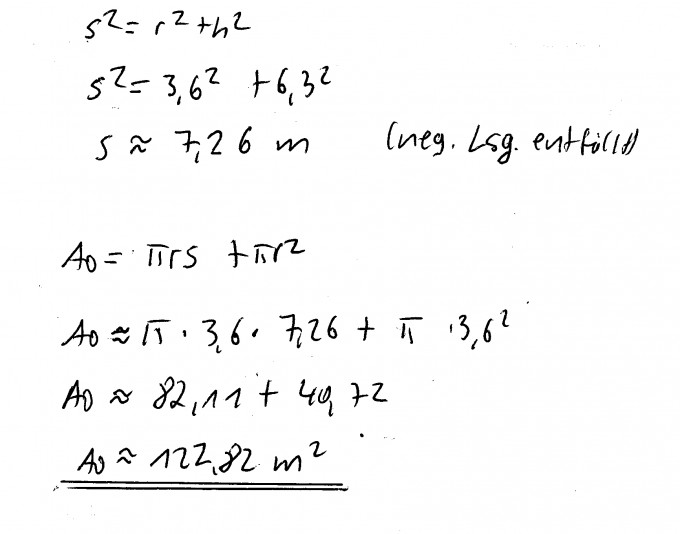 s² = r² + h²
s² = 3,6² + 6,3²
s ≈ 7,26 m (neg. Lsg. entfällt)
A₀ = πrs + πr²
A₀ ≈ π · 3,6 · 7,26 + π · 3,6²
A₀ ≈ 82,11 + 40,72
A₀ ≈ 122,82 m²